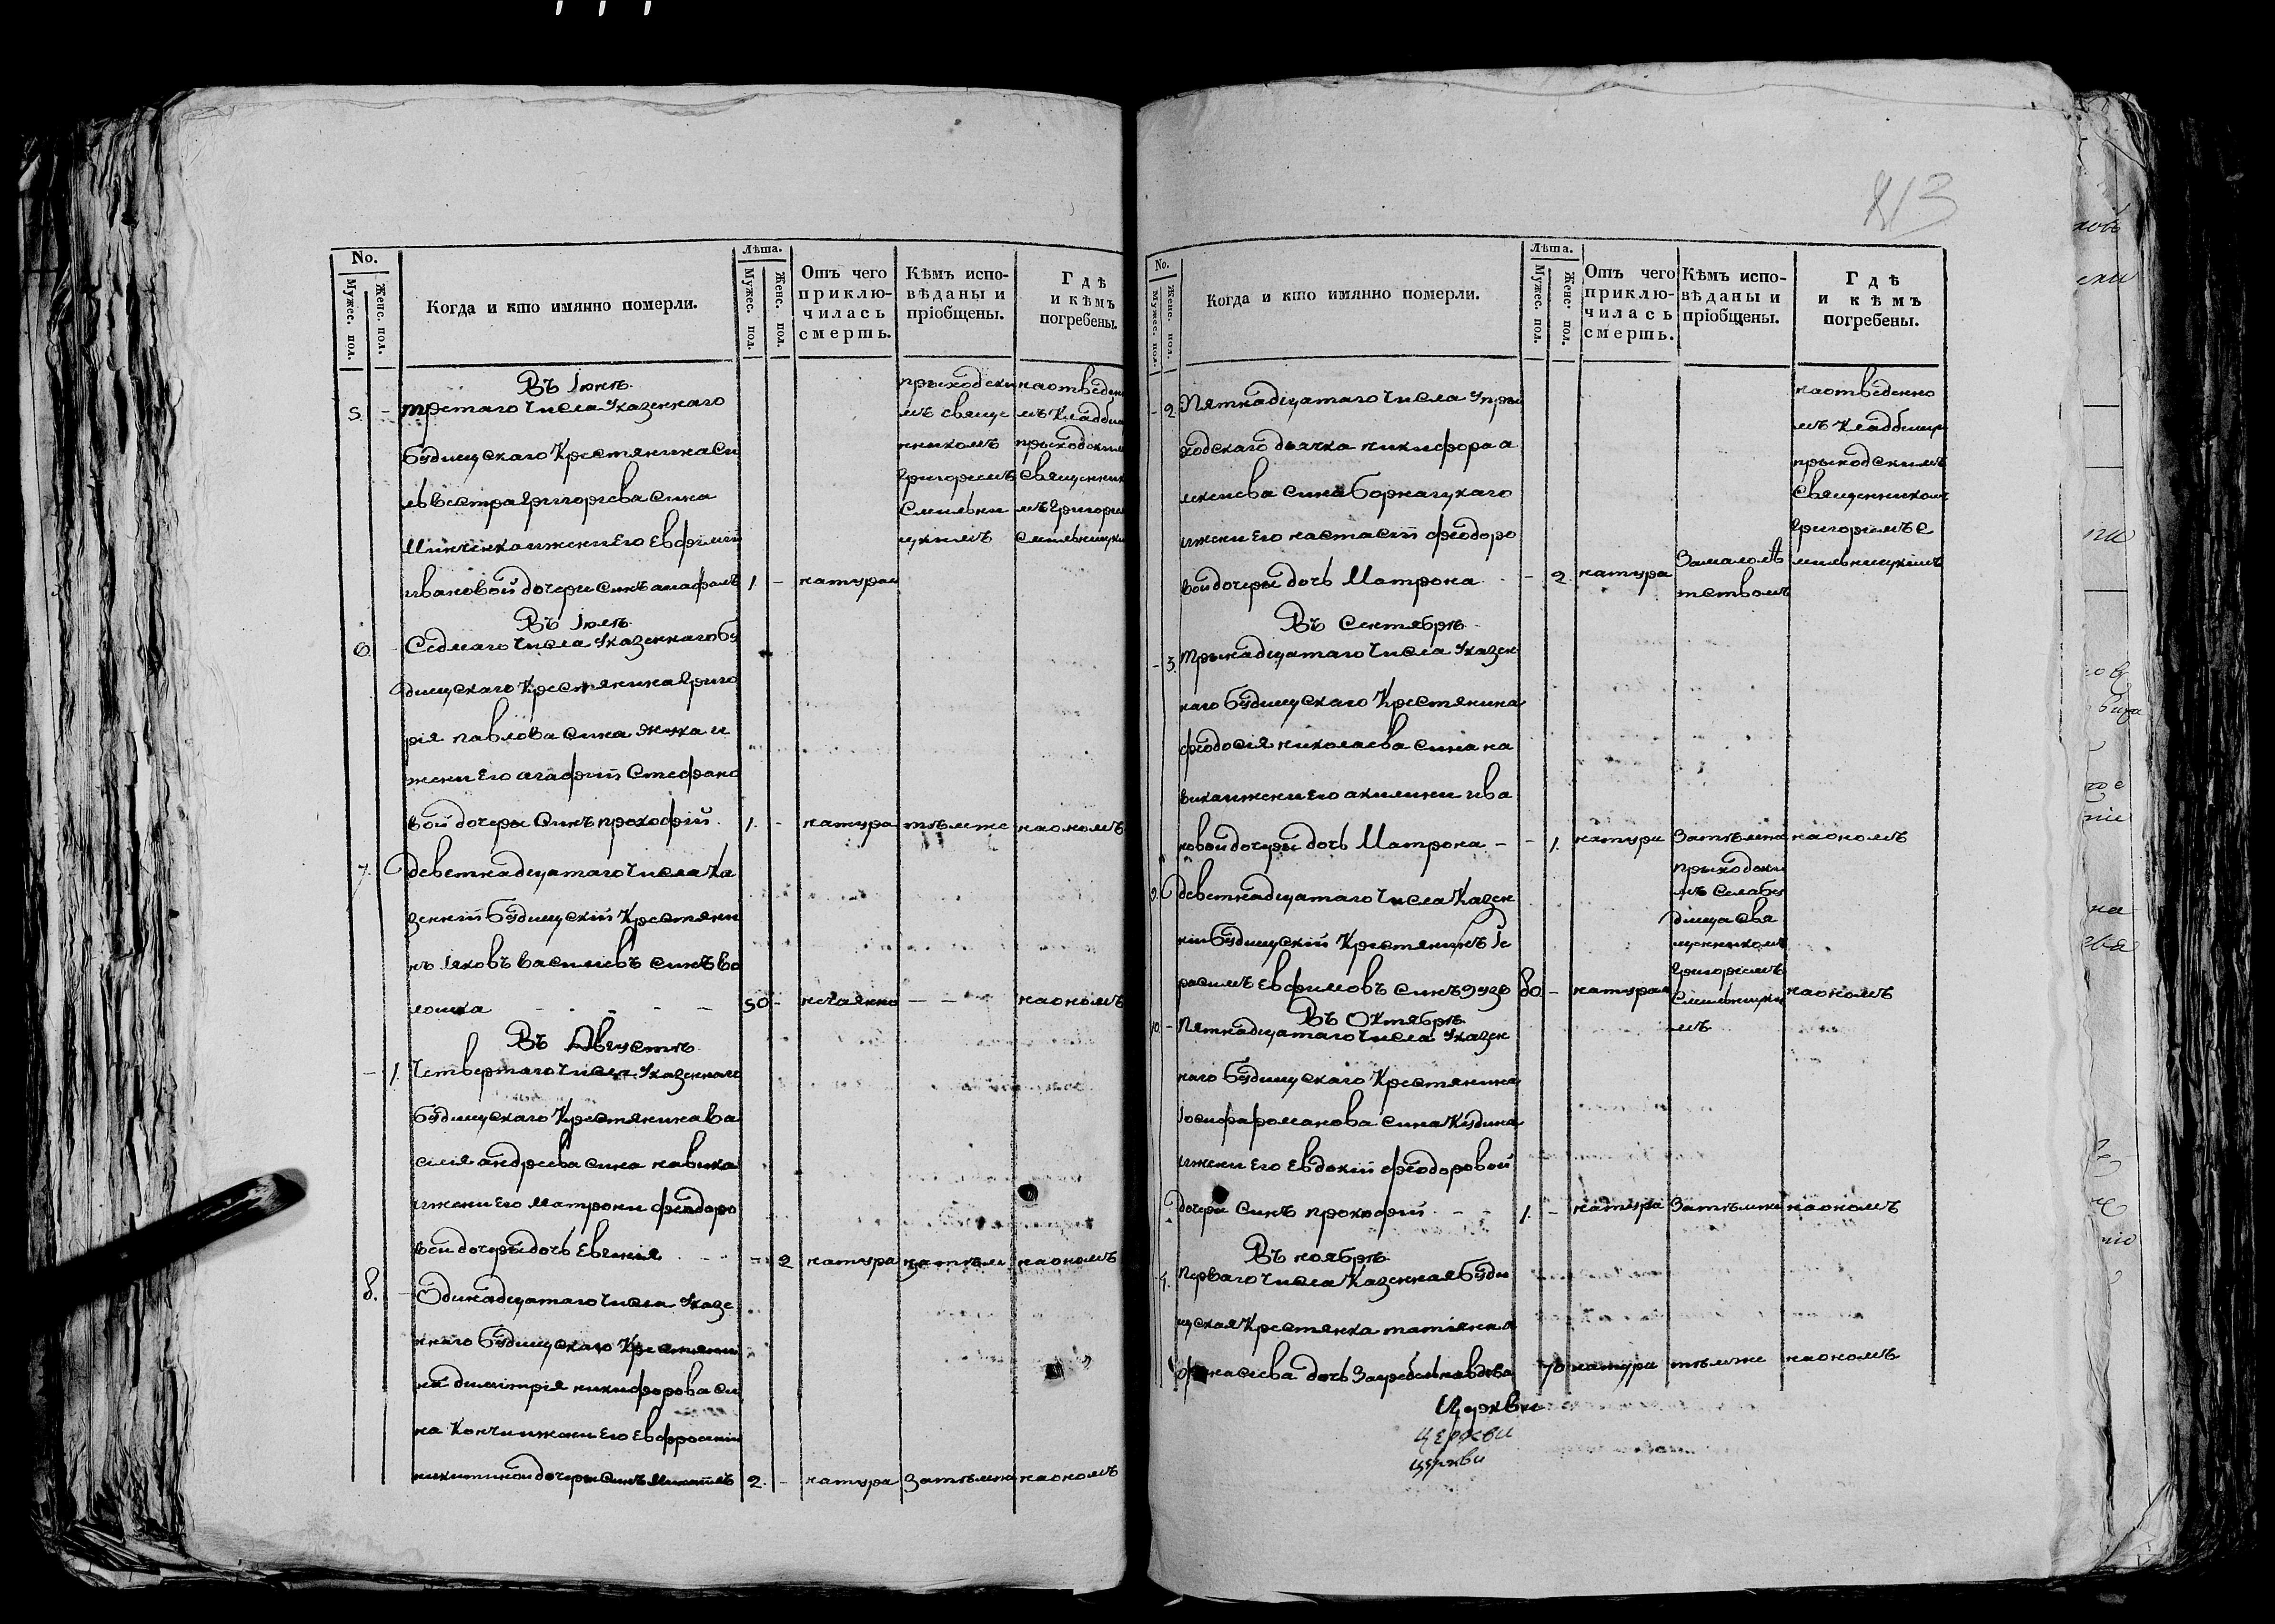 813
No.
Мужес. пол.
Женс. пол.
Когда и кто имянно померли.
Лѣта.
Мужес. пол.
Женс. пол.
Отъ чего
приклю-
чилась
смерть.
Кѣмъ испо-
вѣданы и
пріобщены.
Гдѣ
и кѣмъ
погребены.
Въ Іюнѣ
5. - третаго числа Указеннаго
будищскаго Крестянина Си
львестра Григориева сина
и жени Его Евфимїй
ивановой дочери синъ 1 - натурал
прыходски
мъ свяще
нникомъ
Григориемъ
Смильни
цкимъ
на отведенно
мъ Кладби
прыходским
Священник
мъ Григори
Смильницки
Въ Іюлѣ
6. - Седмаго числа Указеннаго бу
дищскаго Крестянина Григо
рія павлова сина и
жени Его агафїй Стефано
вой дочеры Синъ прокофїй 1. - натура тѣмже на ономъ
7. деветнадцатаго числа Ка
зенній будищскїй Крестяни
нъ Іяковъ василиевъ синъ Во
лошка - - - 50 - нечаянно - - на ономъ
Въ Августѣ
- 1. Четвертаго числа Указеннаго
будищскаго Крестянина Ва
силія андреева сина
и жени Его Матрони феодоро
вой дочеры дочь Евгенія - 2 натура затѣм на ономъ
8. - Одинадцатаго числа Указе
ннаго будищскаго Крестяни
на димитрія никифорова си
на и жени Его Евфросинїи
никитиной дочеры Синъ Михаилъ 2. - натура Затѣмже на ономъ
No.
Мужес. пол.
Женс. пол.
Когда и кто имянно померли.
Лѣта.
Мужес. пол.
Женс. пол.
Отъ чего
приклю-
чилась
смерть.
Кѣмъ испо-
вѣданы и
пріобщены.
Гдѣ
и кѣмъ
погребены.
- 2 Пятнадцатаго числа Упры
ходскаго дьячка никифора а
лексиева сина
и жени Его настасїй феодоро
вой дочеры дочь Матрона - 2 натура
Замалолѣ
тством
на отведенно
мъ Кладбищи
прыходскимъ
Священником
Григориемъ С
мильницкимъ
Въ Сентябрѣ
- 3. Трынадцатаго числа Указен
наго будищскаго Крестянина
феодосія николаева сина на
вика и жени Его акилини ива
новой дочеры дочь Матрона - - 1. натури Затѣмже на ономъ
9. деветнадцатаго числа Казен
нїй будищскїй Крестянинъ Ге
расимъ Евфимовъ синъ 80 - натурал на ономъ
прыходски
мъ Села бу
дища Свя
щенныком
Григориемъ
Смильницки
мъ
Въ Октябрѣ
10. - Пятнадцатаго числа Указен
наго будищскаго Крестянина
Іосифа романова сина
и жени Его Евдокїй феодоровой
дочери Синъ прокофїй - - 1. - натура Затѣмже на ономъ
Въ ноябрѣ
- 4. Перваго числа Казенная буди
щская Крестянка татіяна а
фанасіева дочь вдова 70 натури тѣмже на ономъ
Церкви
церкви
церкви